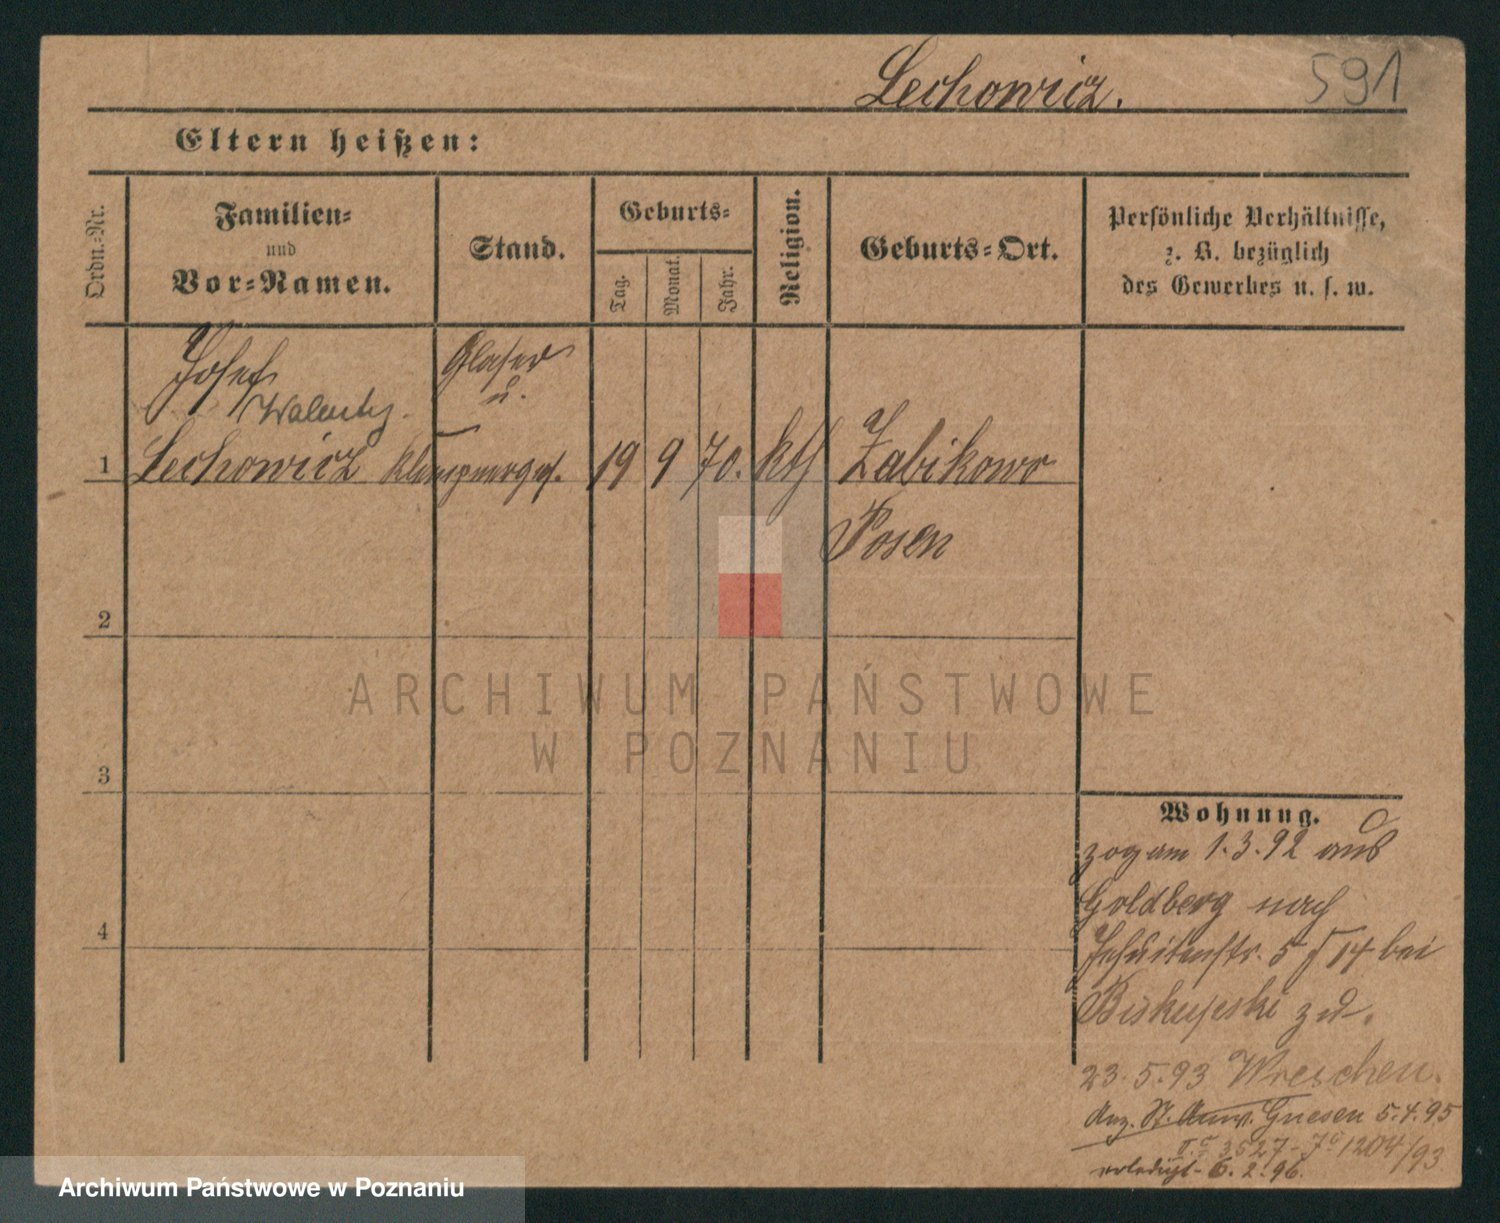 Lechowicz.
591
Eltern heißen:
Ordn.-Nr.
Familien-
und
Vor-Namen.
Stand.
Geburts-
Tag.
Monat.
Jahr.
Religion.
Geburts-Ort.
Persönliche Verhältnisse,
z. B. bezüglich
des Gewerbes u. s. w.
Josef
Walenty.
Glaser
u.
1
Lechowicz Klempnerges. 19 9 70. kth Zabikowo
Posen
2
3
4
Wohnung.
zog am 1.3.92 aus
Goldberg nach
Jesuitenstr. 5 14 bei
Biskupski
23.5.93 Wreschen.
Anz. St. Anw. Gnesen 5.4.95
3527 1204/93
erledigt 6.2.96.
ARCHIWUM PAŃSTWOWE
W POZNANIU
Archiwum Państwowe w Poznaniu